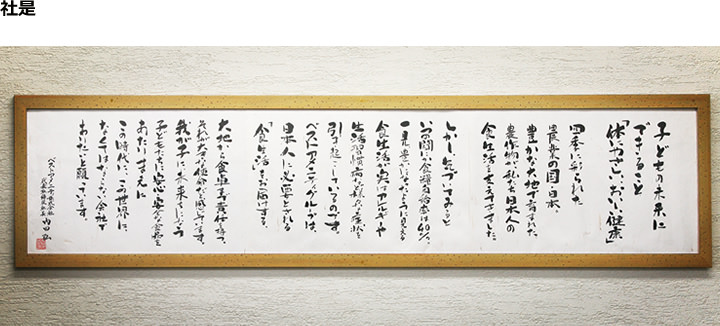 社是
子どもの未来に
できること
「体にやさしい、おいしい健康」
四季に彩られた
農業の国、日本。
豊かな大地で育まれた
農作物が私たち日本人の
食生活をささえてきました。
しかし、気づいてみると
いつの間にか食糧自給率は40%。
一見豊かになったように見える
食生活が実はアレルギーや
生活習慣病など様々な症状を
引き起こしているのです。
ベストアメニティグループは、
日本人に必要とされる
「食生活」をお届けする。
大地から食卓まで責任を持つ。
それが大切な使命だと感じています。
我が子に、未来をになう
子どもたちに安心・安全な食を
あたりまえに
この時代に、この世界に、
なくてはならない会社で
ありたいと願っています。
ベストアメニティ株式会社
代表取締役社長 内田弘